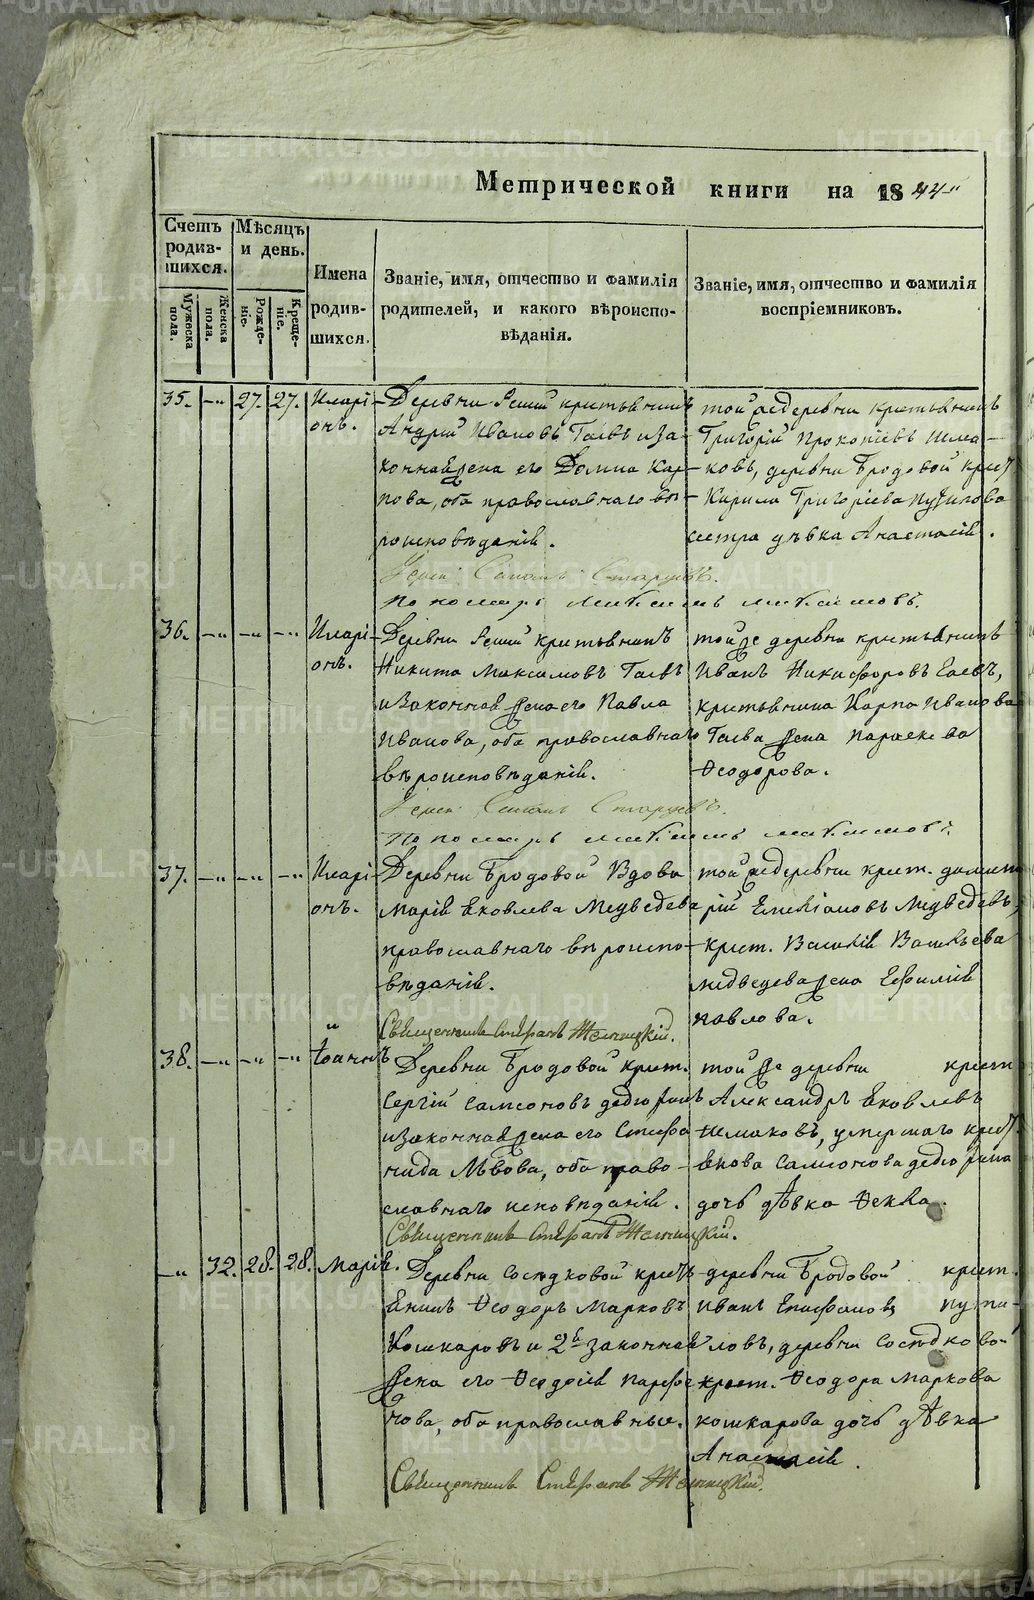 Метрической книги на 1844
Счетъ родив-шихся.
Мѣсяцъ и день.
Мужеска пола.
Женска пола.
Рожде-ніе.
Креще-ніе.
Имена родив-шихся.
Званіе, имя, отчество и фамилія
родителей, и какого вѣроиспо-
вѣданія.
Званіе, имя, отчество и фамилія
воспріемниковъ.
35. —„ 27. 27. Иларі-
онъ.
Деревни крестьянинъ
Андрей Ивановъ Гаевъ и за-
конная жена его Домна Кар-
пова, оба православнаго вѣ-
роисповѣданія.
той же деревни крестьянинъ
Григорій Прокопіевъ Шма-
ковъ, деревни Бродовой крест
Кирила Григоріева Путилова
сестра дѣвка Анастасія.
36. —„ —„ —„ Иларі-
онъ.
Деревни крестьянинъ
Никита Максимовъ Гаевъ
и законная жена его Павла
Иванова, оба православнаго
вѣроисповѣданія.
той же деревни крестьянинъ
Иванъ Никифоровъ Гаевъ,
крестьянина Карпа Иванова
Гаева жена Параскева
Ѳеодорова.
37. —„ —„ —„ Иларі-
онъ.
Деревни Бродовой вдова
Марія Яковлева Медведева
православнаго вѣроиспо-
вѣданія.
Священникъ Стефанъ
той же деревни крест.
Емеліановъ Медведевъ,
крест. Василія Васильева
Медведева жена Евфимія
Павлова.
38. —„ —„ —„ Іоаннъ
Деревни Бродовой крест.
Сергій Самсоновъ Дедюхинъ
и законная жена его Стефа
нида Львова, оба право-
славнаго исповѣданія.
Священникъ Стефанъ
той же деревни крест
Александръ Яковлевъ
Шмаковъ, умершаго крест.
Якова Самсонова Дедюхина
дочь дѣвка Ѳекла.
—„ 32. 28. 28. Марія.
Деревни Сосѣдковой крестъ-
янинъ Ѳеодоръ Марковъ
Кошкаровъ и 2я законная
жена его Ѳеодосія Парфе
нова, оба православные.
Священникъ Стефанъ
деревни Бродовой крест.
Иванъ Епифановъ Пути-
ловъ, деревни Сосѣдково-
крест. Ѳеодора Маркова
Кошкарова дочь дѣвка
Анастасія.
METRIKI.GASO-URAL.RU